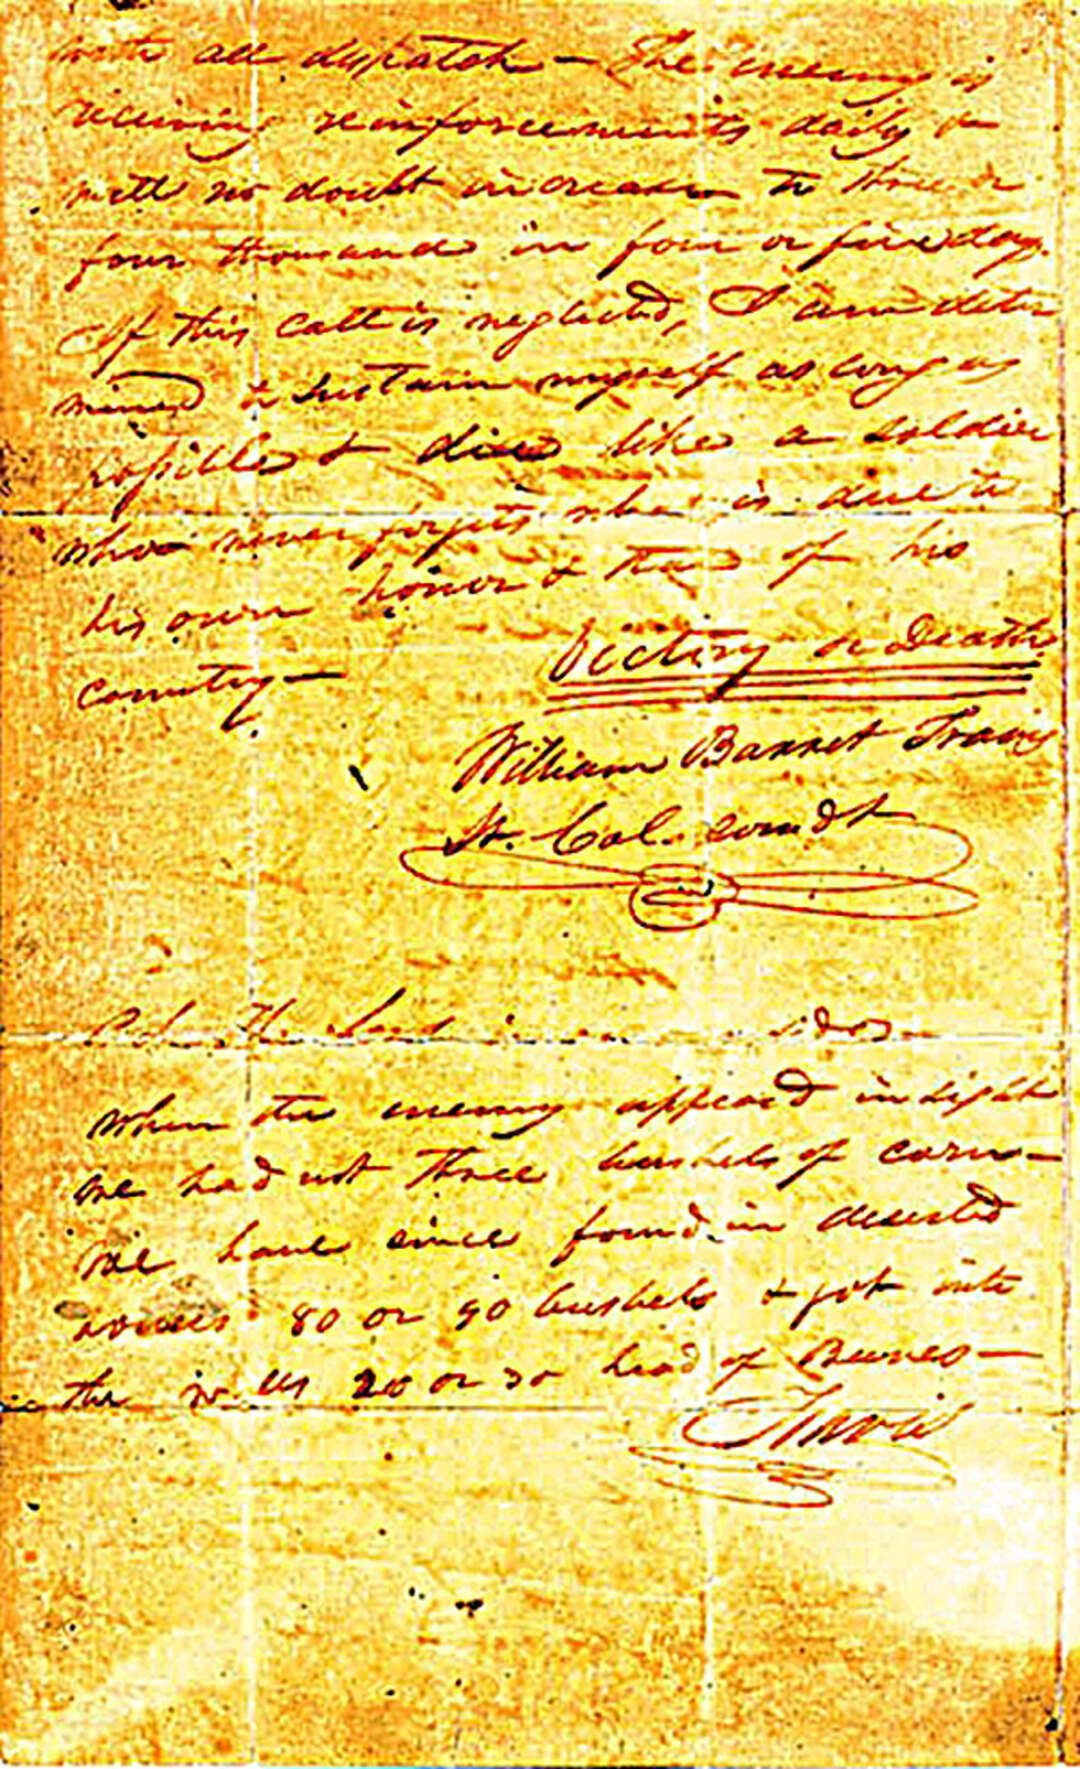 with all dispatch — The enemy is
receiving reinforcements daily &
will no doubt increase to three or
four thousand in four or five days.
If this call is neglected, I am deter
mined to sustain myself as long as
possible & die like a soldier
who never forgets what is due to
his own honor & that of his
country —
Victory or Death
William Barret Travis
Lt. Col. comdt
P.S. The Lord is on our side —
When the enemy appeard in sight
we had not three bushels of corn —
We have since found in deserted
houses 80 or 90 bushels & got into
the walls 20 or 30 head of Beeves —
Travis